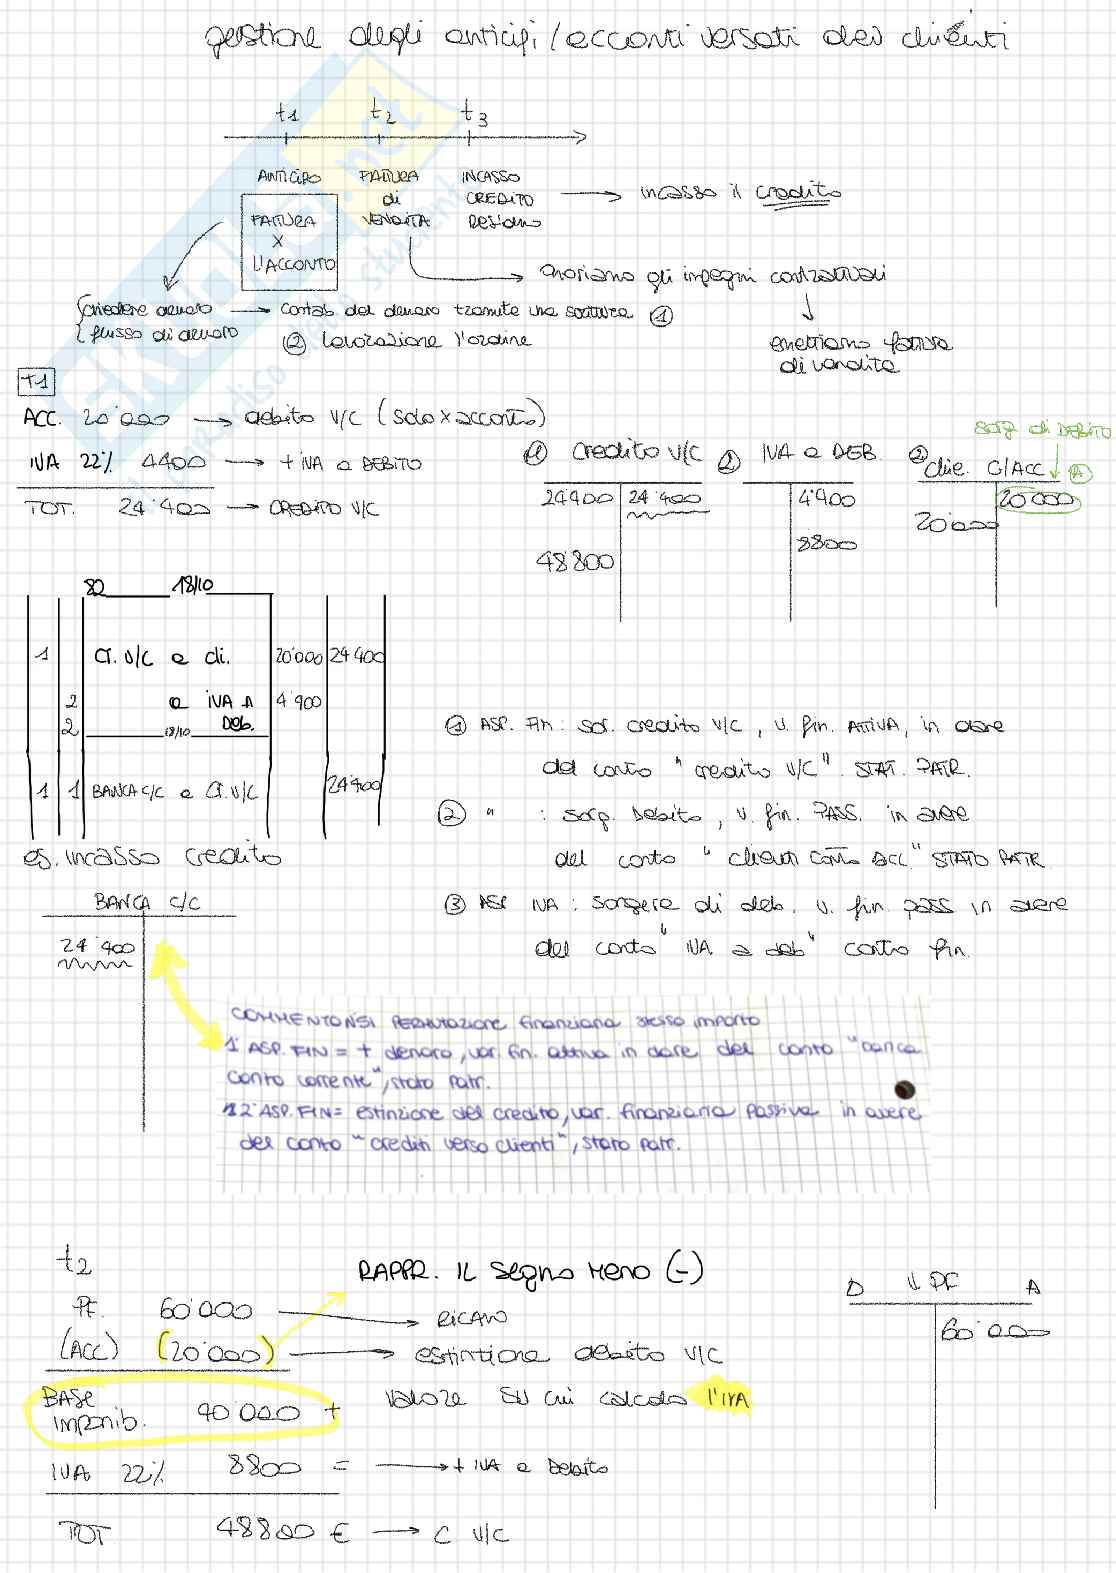 gestione degli anticipi/acconti versati dai clienti
t1 t2 t3
ANTICIPO FATTURA INCASSO
di CREDITO → incasso il credito
FATTURA VENDITA RESIDUO
X
L'ACCONTO
onoriamo gli impegni contrattuali
chiedere denaro → contab. del denaro tramite una scrittura ①
flusso di denaro ② lavorazione l'ordine
emettiamo fattura
di vendita
t1
ACC. 20'000 → debito V/C (solo x acconto)
IVA 22% 4400 → + IVA a DEBITO
TOT. 24'400 → CREDITO V/C
sorg di DEBITO
① credito V/C ② IVA a DEB. ② clie. C/ACC A
24400 24'400 4'400 20'000
20'000
8800
48800
82 18/10
1 Cr. V/C a di. 20'000 24 400
2 a IVA A 4'400
2 18/10 Deb.
1 1 BANCA c/c a Cr. V/C 24'400
es. incasso credito
① ASP. FIN: sor. credito V/C, v. fin. ATTIVA, in dare
del conto "credito V/C". STAT. PATR.
② " : sorg. Debito, v. fin. PASS. in avere
del conto "clienti conto acc" STATO PATR
③ ASP IVA: sorgere di deb. v. fin. pass in avere
del conto "IVA a deb" conto fin.
BANCA C/C
24'400
COMMENTONSI PERMUTAZIONE finanziaria stesso importo
1° ASP. FIN = + denaro, var. fin. attiva in dare del conto "banca
conto corrente", stato patr.
2° ASP. FIN = estinzione del credito, var. finanziaria passiva in avere
del conto "crediti verso clienti", stato patr.
t2
RAPPR. IL segno MENO (-)
PF. 60'000 → RICAVO
(ACC) (20'000) → estintione debito V/C
BASE
IMPONIB. 40 000 + valore su cui calcolo l'IVA
IVA 22% 8800 = → + IVA a Debito
TOT 48800 € → C V/C
D V PF A
60'000